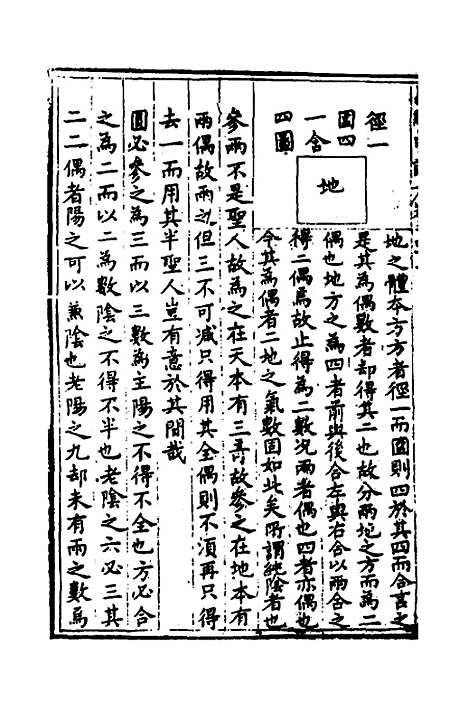 徑一
圍四
一舍
四圓
地
地之體本方方者徑一而圍則四於其四而合言之
是其為偶數者却得其二也故分兩地之方而為二
偶也地方之為四者前與後合左與右合以兩合之
得二偶焉故止得為二數況兩者偶也四者亦偶也
令其為偶者二地之氣數固如此矣所謂純陰者也
參兩不是聖人故為之在天本有三奇故參之在地本有
兩偶故兩之但三不可減只得用其全偶則不須再只得
去一而用其半聖人豈有意於其間哉
圓必參之為三而以三數為主陽之不得不全也方必合
之為二而以二為數陰之不得不半也老陰之六必三其
二二偶者陽之可以兼陰也老陽之九却未有兩之數焉